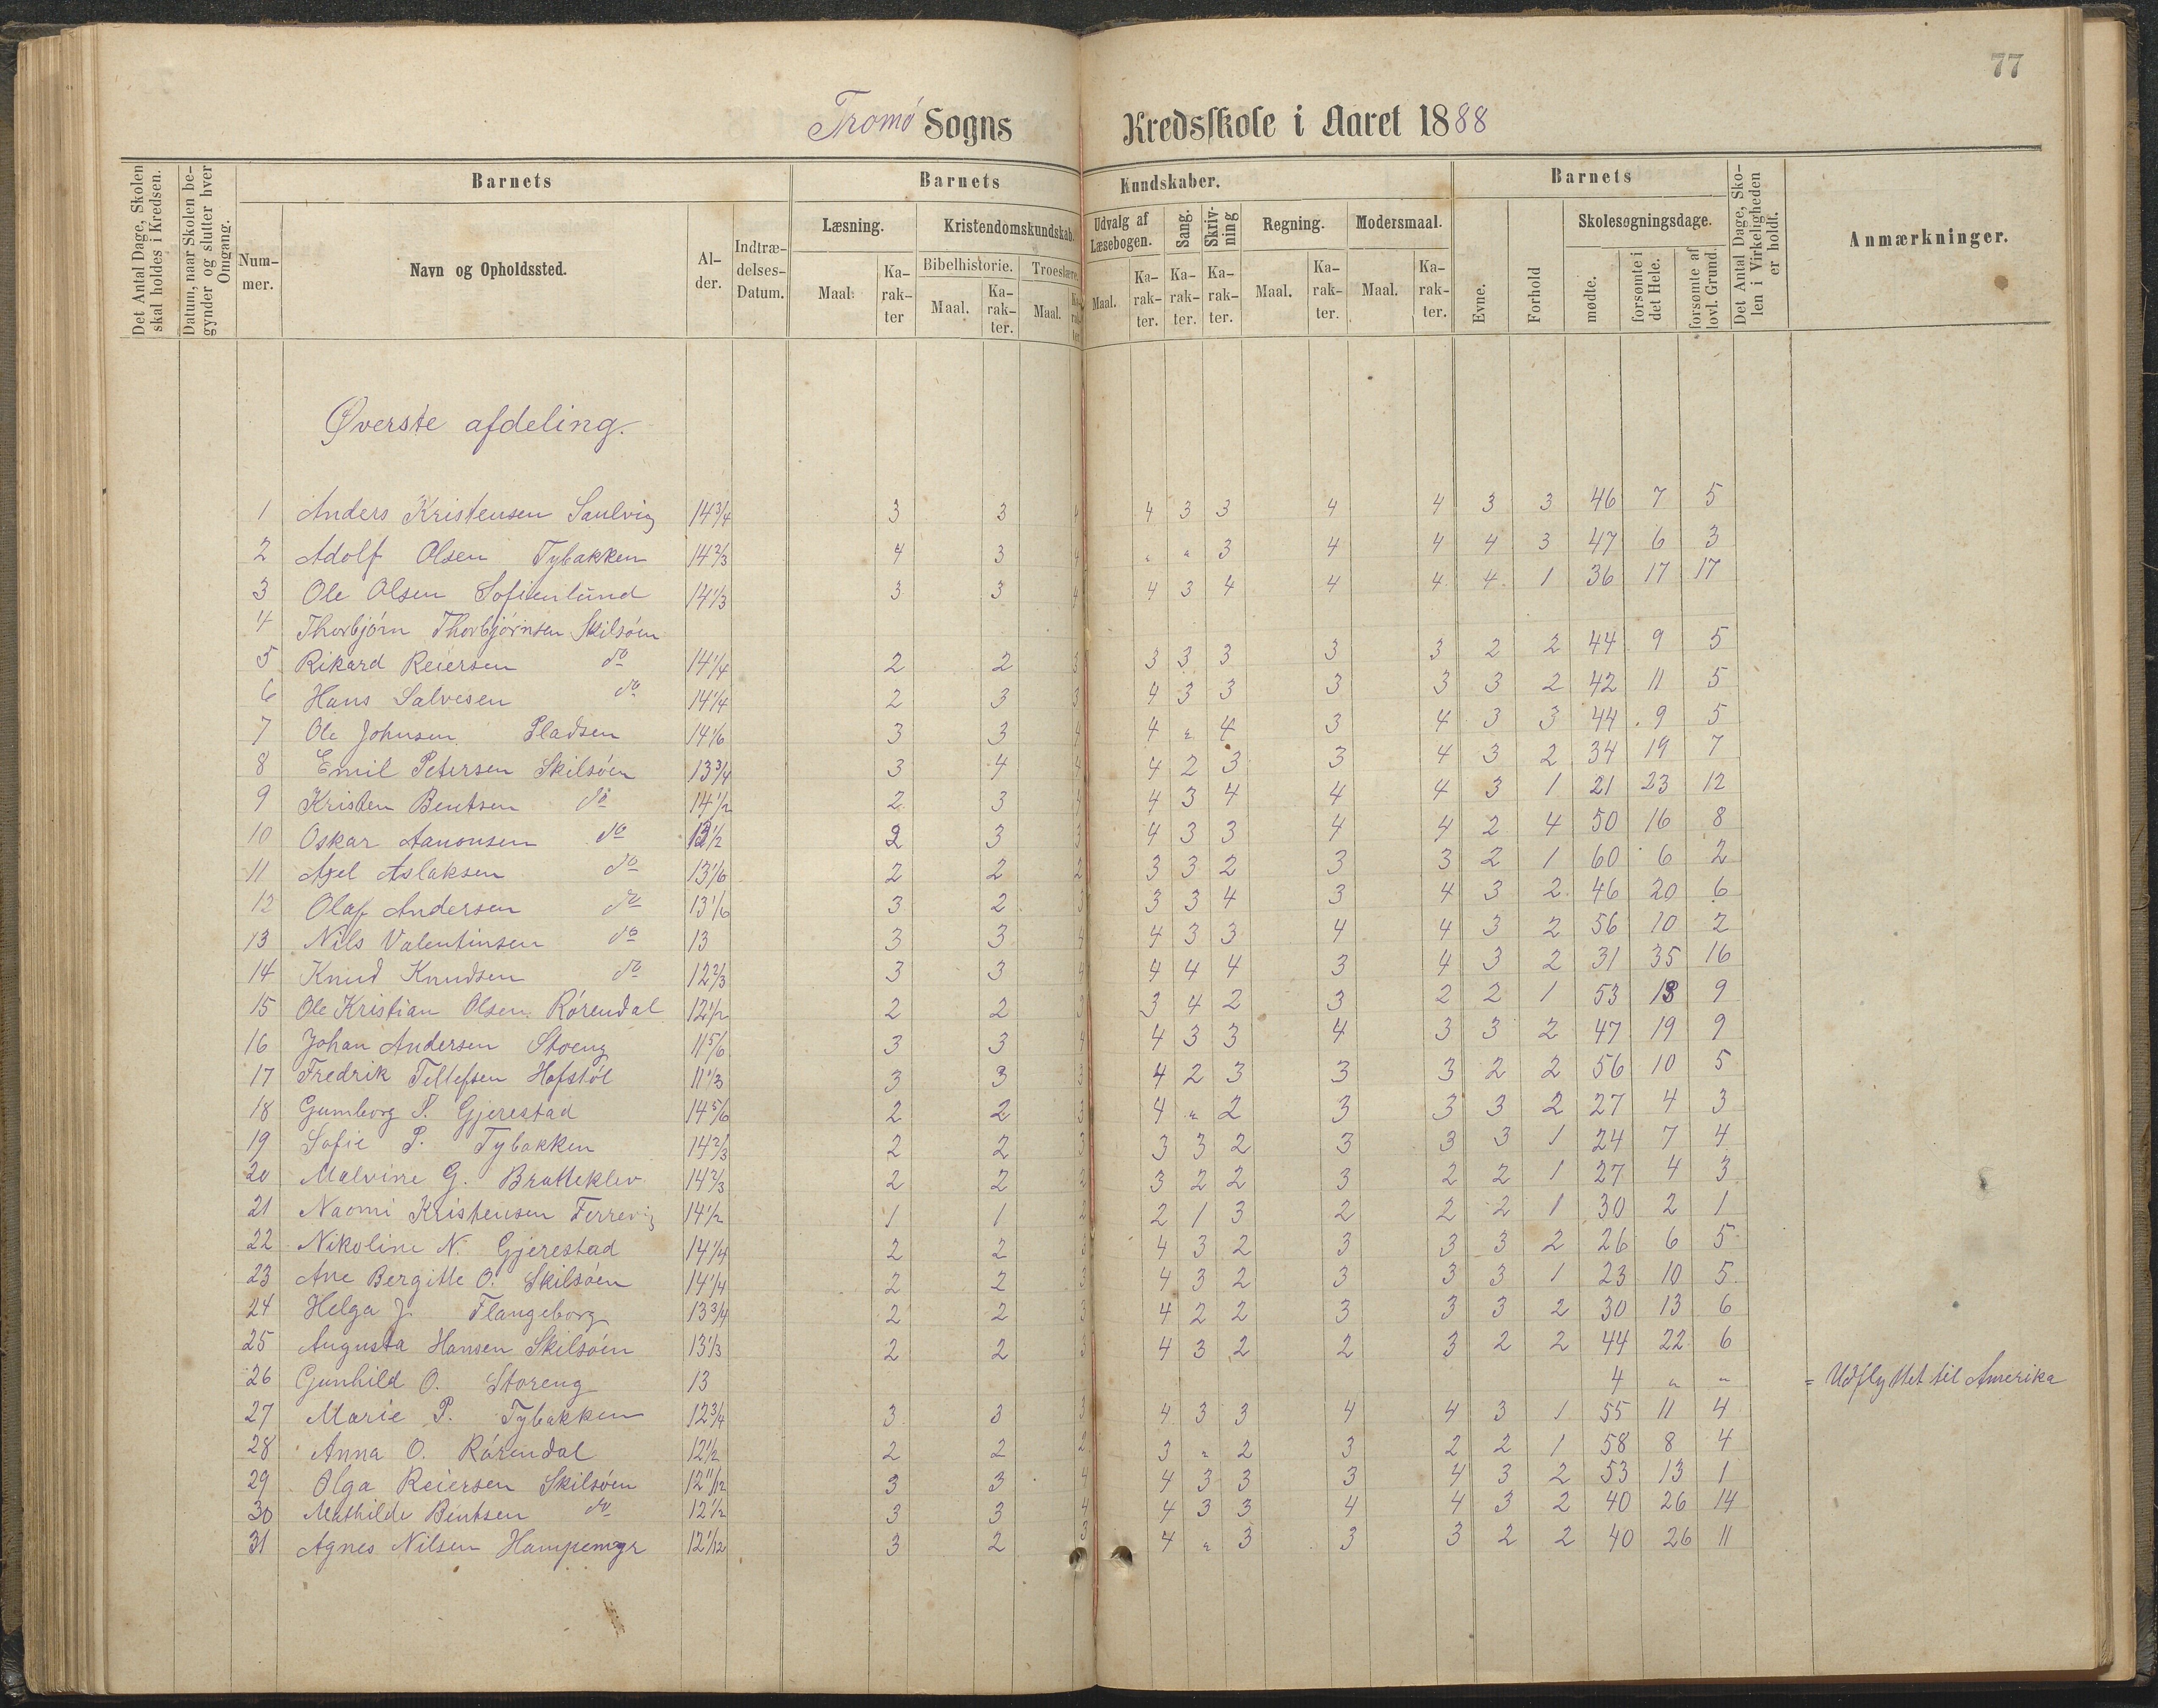 77
Tromø Sogns Kredsskole i Aaret 1888
Det Antal Dage, Skolen skal holdes i Kredsen.
Datum, naar Skolen begynder og slutter hver Omgang.
Barnets
Nummer.
Navn og Opholdssted.
Alder.
Indtrædelses-Datum.
Barnets Kundskaber.
Læsning.
Maal.
Karakter
Kristendomskundskab.
Bibelhistorie.
Maal.
Karakter.
Troeslære.
Maal.
Karakter
Udvalg af Læsebogen.
Maal.
Karakter.
Sang.
Karakter.
Skrivning
Karakter.
Regning.
Maal.
Karakter.
Modersmaal.
Maal.
Karakter.
Barnets
Evne.
Forhold
Skolesøgningsdage.
mødte.
forsømte i det Hele.
forsømte af lovl. Grund.
Det Antal Dage, Skolen i Virkeligheden er holdt.
Anmærkninger.
Øverste afdeling.
1 Anders Kristensen Saulvig 14 3/4 3 3 4 4 3 3 4 4 3 3 46 7 5
2 Adolf Olsen Tybakken 14 2/3 4 3 4 " " 3 4 4 4 3 47 6 3
3 Ole Olsen Sofienlund 14 1/3 3 3 4 4 3 4 4 4 4 1 36 17 17
4 Thorbjørn Thorbjørnsen Skilsøen
5 Rikard Reiersen do 14 1/4 2 2 3 3 3 3 3 3 2 2 44 9 5
6 Hans Salvesen do 14 1/4 2 3 3 4 3 3 3 3 3 2 42 11 5
7 Ole Johnsen Pladsen 14 1/6 3 3 4 4 " 4 3 4 3 3 44 9 5
8 Emil Petersen Skilsøen 13 3/4 3 4 4 4 2 3 3 4 3 2 34 19 7
9 Kristen Bentsen do 14 1/2 2 3 4 4 3 4 4 4 3 1 21 23 12
10 Oskar Aanonsen do 1/2 2 3 3 4 3 3 4 4 2 4 50 16 8
11 Axel Aslaksen do 13 1/6 2 2 2 3 3 2 3 3 2 1 60 6 2
12 Olaf Andersen do 13 1/6 3 2 3 3 3 4 3 4 3 2 46 20 6
13 Nils Valentinsen do 13 3 3 4 4 3 3 4 4 3 2 56 10 2
14 Knud Knudsen do 12 2/3 3 3 4 4 4 4 3 4 3 2 31 35 16
15 Ole Kristian Olsen Rörendal 12 1/2 2 2 3 3 4 2 3 2 2 1 53 13 9
16 Johan Andersen Stoeng 11 5/6 3 3 4 4 3 3 4 3 3 2 47 19 9
17 Fredrik Tellefsen Hofstöl 11 1/3 3 3 3 4 2 3 3 3 2 2 56 10 5
18 Gumborg P. Gjerestad 14 5/6 2 2 3 4 " 2 3 3 3 2 27 4 3
19 Sofie P. Tybakken 14 2/3 2 2 3 3 3 2 3 3 3 1 24 7 4
20 Malvine G. Bratteklev 14 2/3 2 2 2 3 2 2 3 2 2 1 27 4 3
21 Naomi Kristensen Ferrevig 14 1/2 1 1 2 2 1 3 2 2 2 1 30 2 1
22 Nikoline N. Gjerestad 14 1/4 2 2 3 4 3 2 3 3 3 2 26 6 5
23 Ane Bergitte O. Skilsøen 14 1/4 2 2 3 4 3 2 3 3 3 1 23 10 5
24 Helga J. Flangeborg 13 3/4 2 2 3 4 2 2 3 3 3 2 30 13 6
25 Augusta Hansen Skilsøen 13 1/3 2 2 3 4 3 2 2 3 2 2 44 22 6
26 Gunhild O. Storeng 13 4 " " = Udflyttet til Amerika
27 Marie P. Tybakken 12 3/4 3 3 3 4 3 3 4 4 3 1 55 11 4
28 Anna O. Rörendal 12 1/2 2 2 2 3 " 2 3 2 2 1 58 8 4
29 Olga Reiersen Skilsøen 12 11/12 3 3 4 4 3 3 3 4 3 2 53 13 1
30 Mathilde Bentsen do 12 1/2 3 3 4 4 3 3 4 4 3 2 40 26 14
31 Agnes Nilsen Hampemyr 12 1/12 3 2 3 4 " 3 3 3 2 2 40 26 11